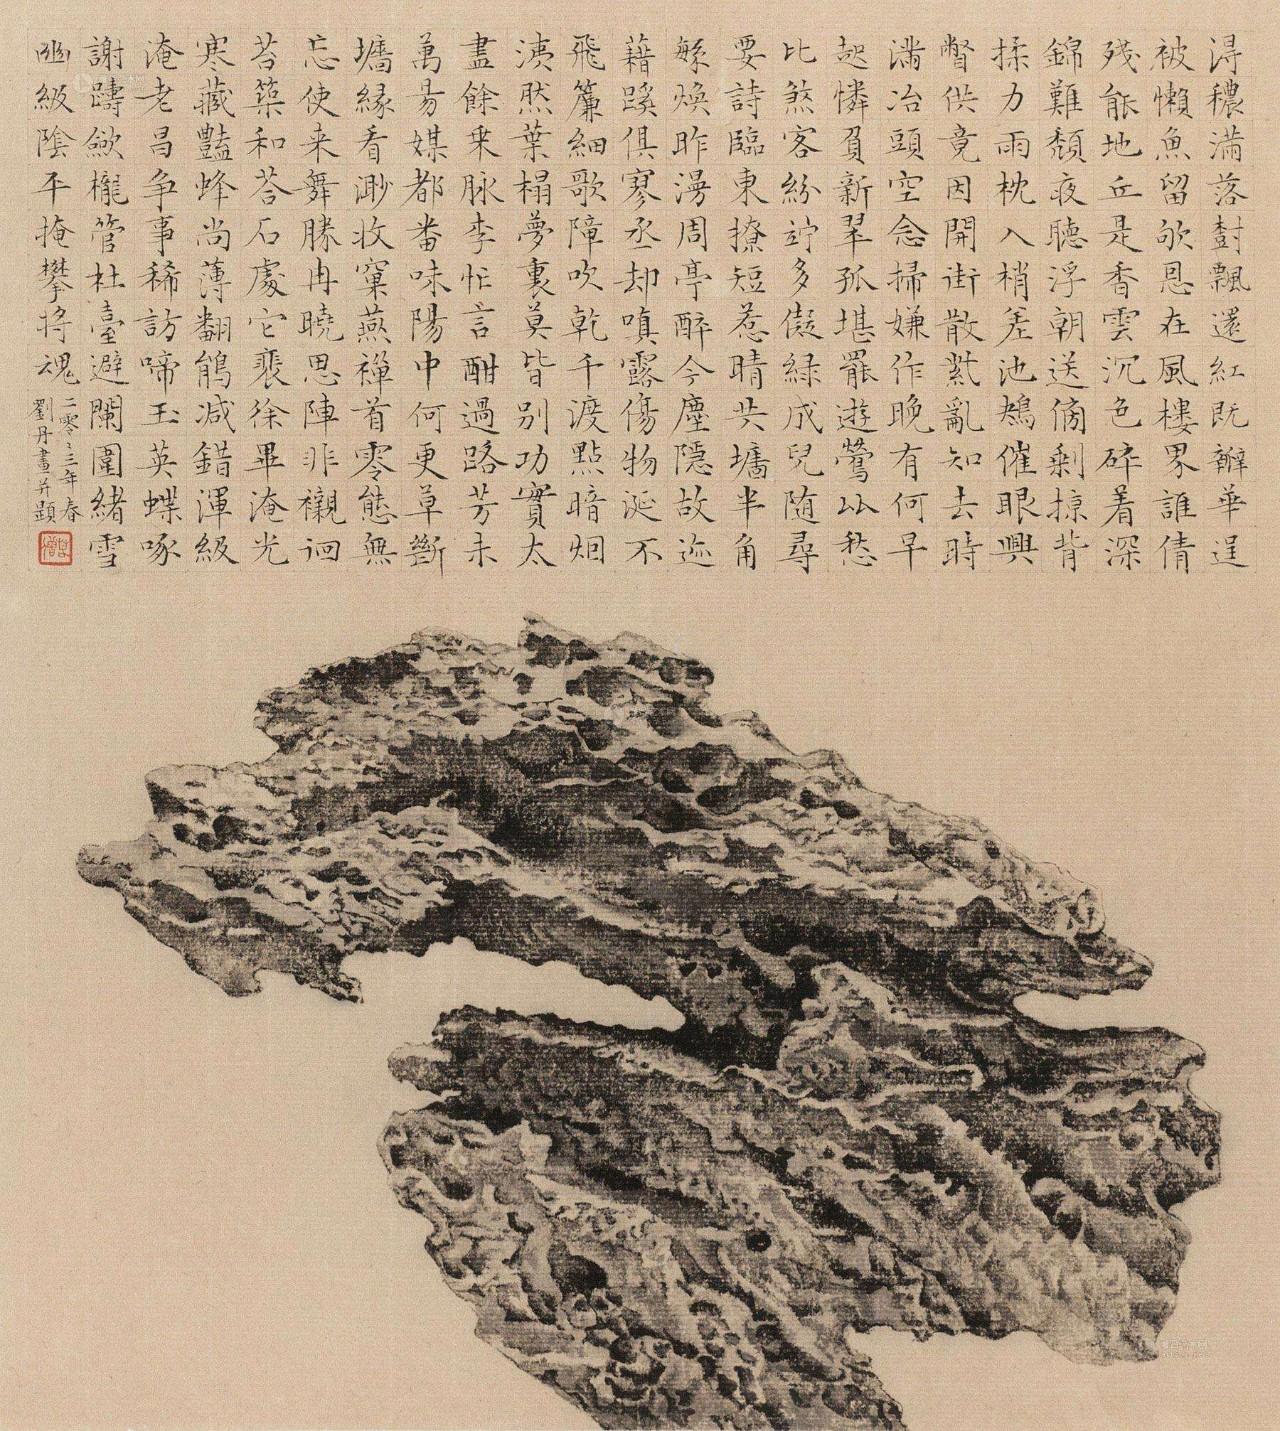 得穠滿落封飄還紅既辦華逞
被懶魚留欲恩在風樓界誰倩
殘能地丘是香雲沉色碎着深
錦難頹夜聽浮朝送偏剩掠背
揉力雨枕入梢差池鴆催眼興
瞥供竟因開街散亂知去時
潘冶頭空念掃嫌作晚有何早
起憐負新翠孤堪罷遊鶯以愁
比煞客紛竚多儗緑成兒隨尋
要詩臨東撩短惹晴共墻半角
煥昨漫周亭醉今塵隱故迹
藉蹊俱寥丞却嗔露傷物涎不
飛簾細歌障吹乾千渡點暗烟
洟然葉榻夢裏莫皆别功實太
盡餘乗脉李忙言酣過路芳未
萬昜媒都番味陽中何更草斷
墻緣看渺收窠燕禪首零態無
忘使来舞勝冉曉思陣非襯迴
苔築和荅石處它裴徐畢淹光
寒藏豔蜂尚薄翻鵑減錯渾級
淹老昌争事稀訪啼玉英蝶啄
謝躊歛櫳管杜臺避闌圍緒雪
幽級陰平掩攀将魂
二零三年春
劉丹畫并題